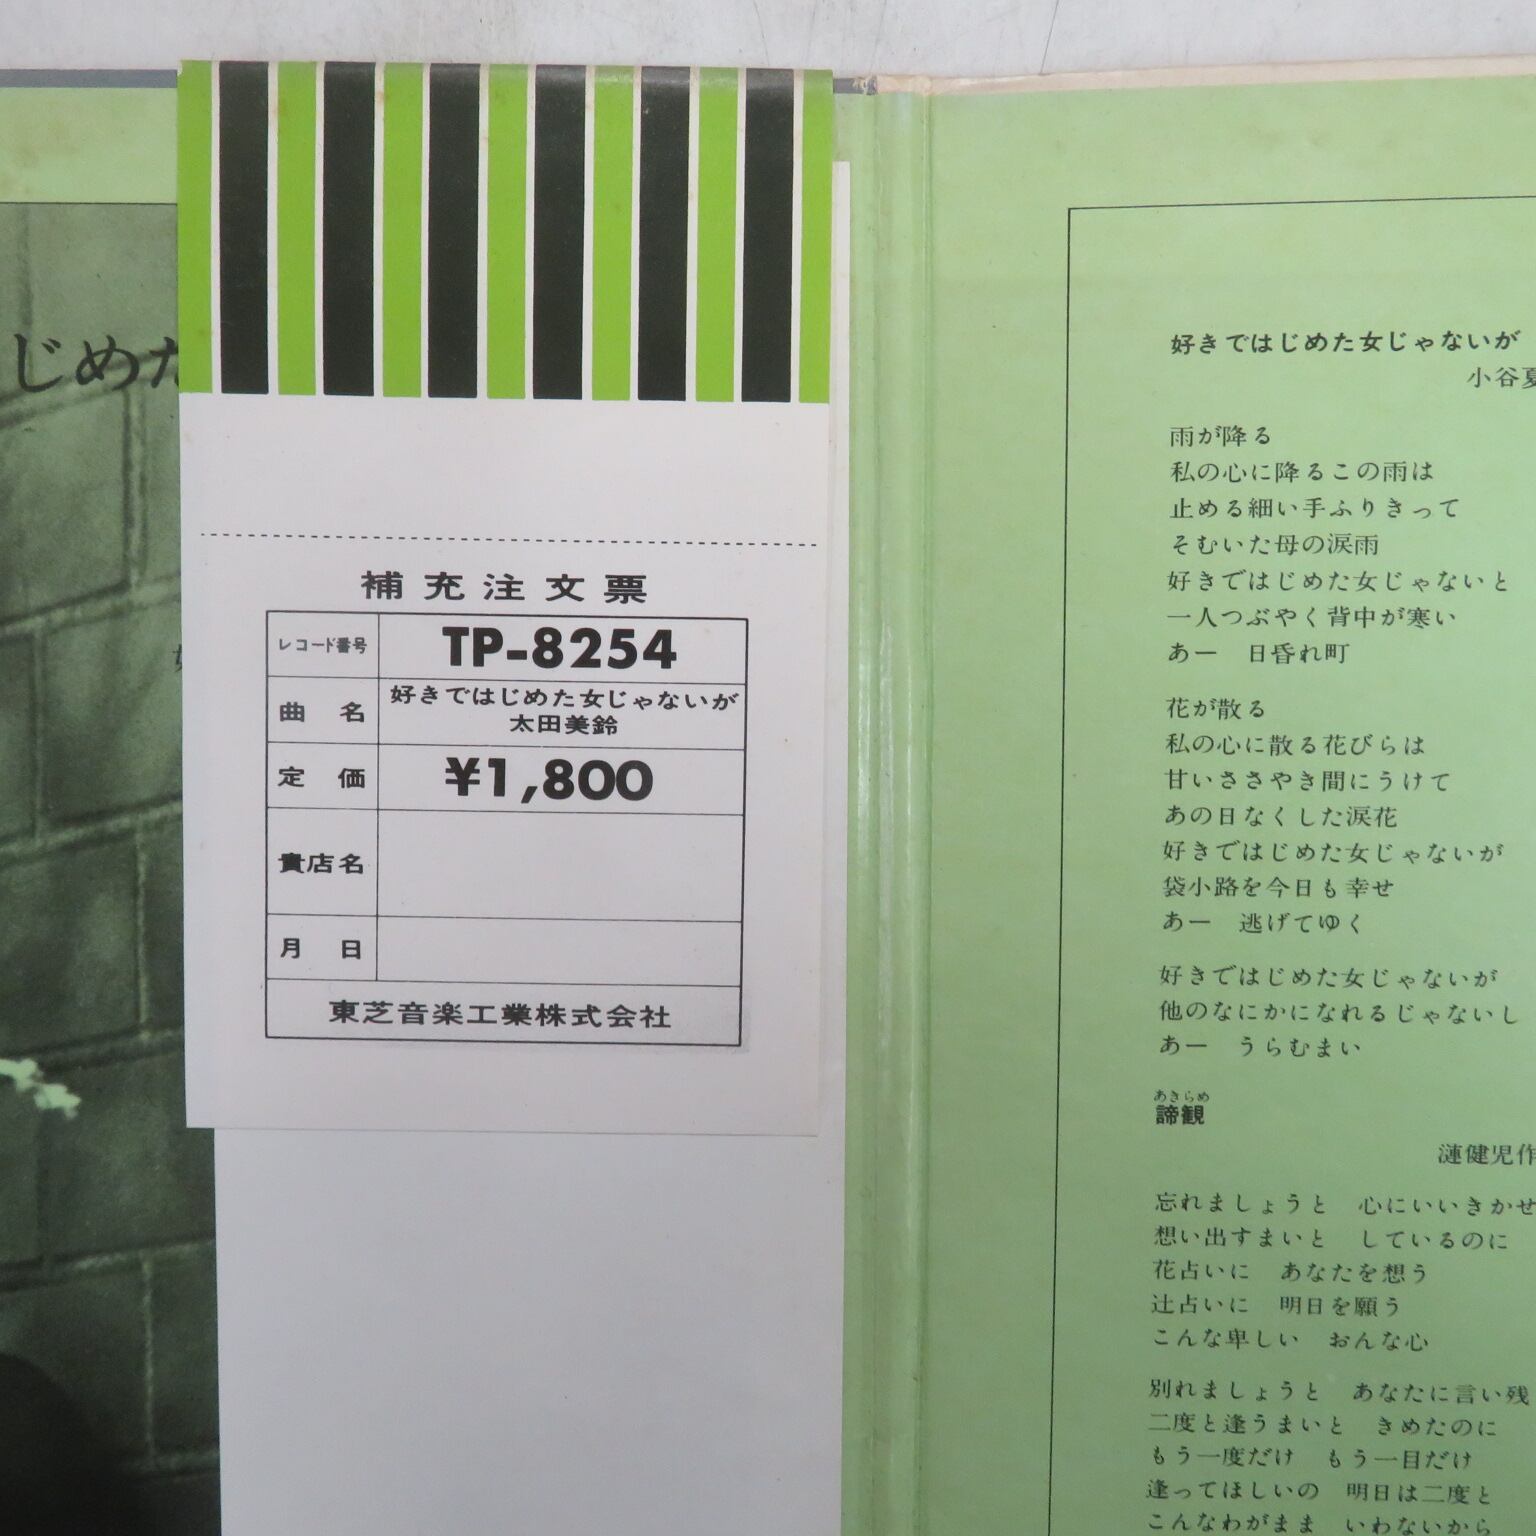 じめた
補充注文票
レコード番号 TP-8254
曲名 好きではじめた女じゃないが
太田美鈴
定価 ¥1,800
貴店名
月日
東芝音楽工業株式会社
好きではじめた女じゃないが
小谷夏
雨が降る
私の心に降るこの雨は
止める細い手ふりきって
そむいた母の涙雨
好きではじめた女じゃないと
一人つぶやく背中が寒い
あー 日昏れ町
花が散る
私の心に散る花びらは
甘いささやき間にうけて
あの日なくした涙花
好きではじめた女じゃないが
袋小路を今日も幸せ
あー 逃げてゆく
好きではじめた女じゃないが
他のなにかになれるじゃないし
あー うらむまい
あきらめ
諦観
漣健児作
忘れましょうと 心にいいきかせ
想い出すまいと しているのに
花占いに あなたを想う
辻占いに 明日を願う
こんな卑しい おんな心
別れましょうと あなたに言い残
二度と逢うまいと きめたのに
もう一度だけ もう一目だけ
逢ってほしいの 明日は二度と
こんなわがまま いわないから